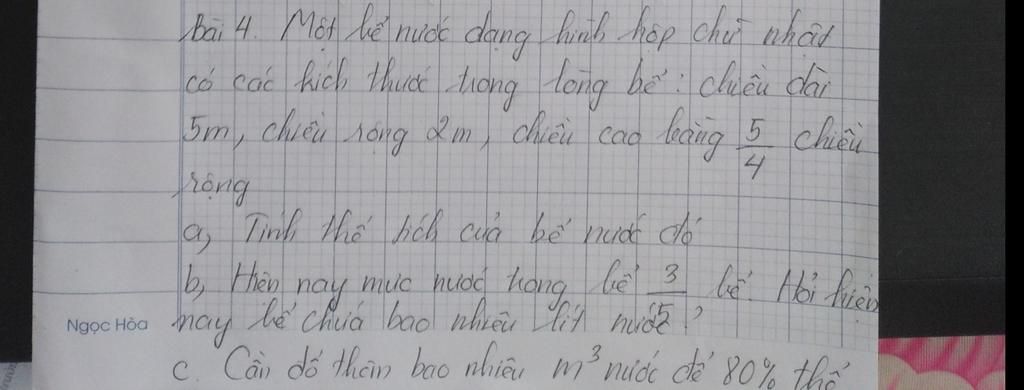 bài 4. Một bể nước dạng hình hộp chữ nhật
có các kích thước trong lòng bể: chiều dài
5m, chiều rộng 2m, chiều cao bằng 5/4 chiều
rộng
a, Tính thể tích của bể nước đó
b, Hiện nay mực nước trong bể 3/5 bể. Hỏi hiện
Ngọc Hòa
nay bể chứa bao nhiêu lít nước?
c. Cần đổ thêm bao nhiêu m³ nước để 80% thể